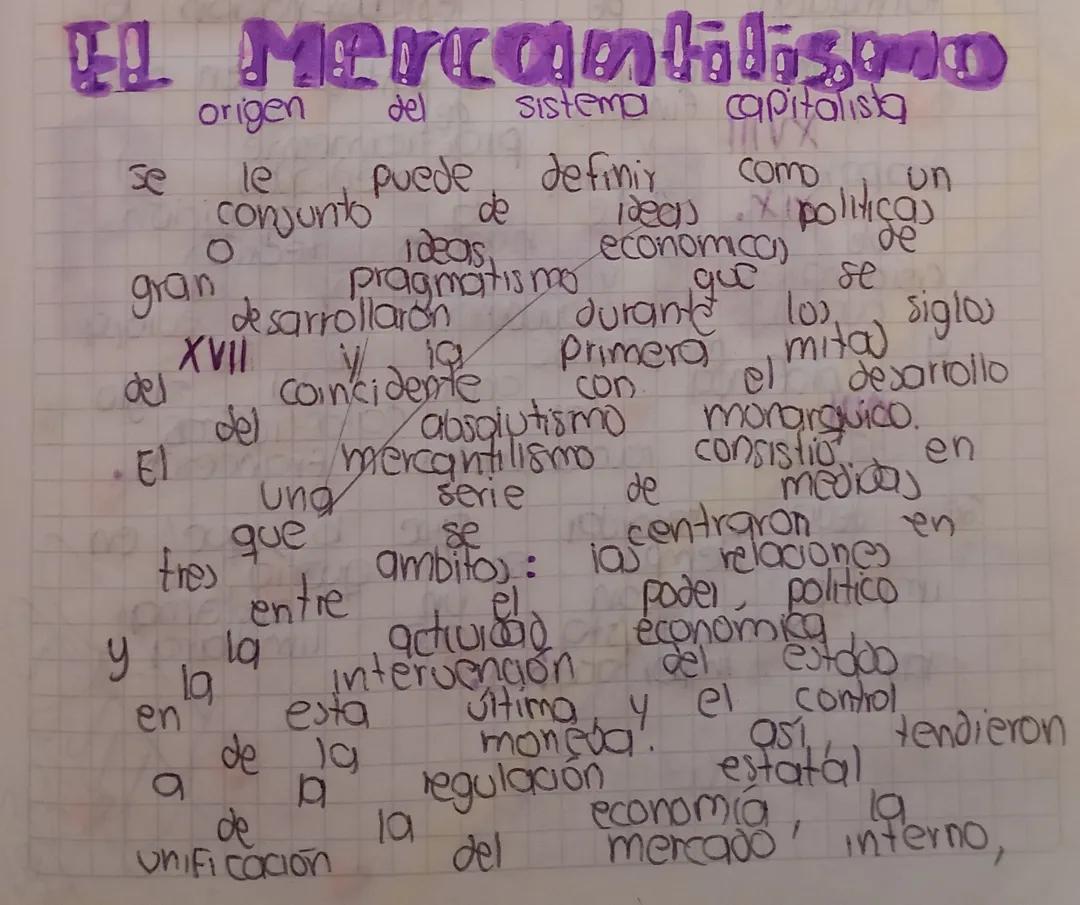 El Mercantilismo
origen del sistema capitalista
se le puede definir como un
conjunto de ideas politicas
o ideas economicas de
gran pragmatismo que se
desarrollaron durante los siglos
XVII y la primera mitad
del coincidente con el desarrollo
del absolutismo monarquico.
. El mercantilismo consistio en
una serie de medidas
que se centraron en
tres ambitos: las relaciones
entre el poder politico
y la actividad económica
la intervención del estado
en esta última y el control
de la moneda. así, tendieron
a la regulación estatal
de la economía, la
unificación del mercado interno,